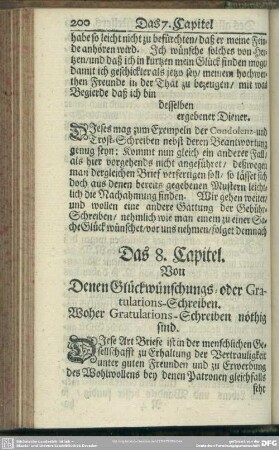 200 Das 7. Capitel
habe so leicht nicht zu befürchten/ daß er meine Fein-
de anhören wird. Ich wünsche solches von Her-
tzen/ und daß ich in kurtzen mein Glück finden möge
damit ich geschickter als jetzo sey/ meinem hochwer-
then Freunde in der That zu bezeugen/ mit was
Begierde daß ich bin
desselben
ergebener Diener.
Dieses mag zum Exempeln der Condolenz- und
Trost-Schreiben nebst deren Beantwortung
genug seyn: Kommt nun gleich ein anderer Fall,
als hier vorgehends nicht angeführet/ deßwegen
man dergleichen Brief verfertigen soll/ so lässet sich
doch aus denen bereits gegebenen Mustern leicht-
lich die Nachahmung finden. Wir gehen weiter/
und wollen eine andere Gattung der Gebühr-
Schreiben/ nehmlich wie man einem zu einer Sa-
che Glück wünschet/ vor uns nehmen/ folget demnach
Das 8. Capitel.
Von
Denen Glückwünschungs- oder Gra-
tulations-Schreiben.
Woher Gratulations-Schreiben nöthig
sind.
Diese Art Briefe ist in der menschlichen Ge-
sellschafft zu Erhaltung der Vertrauligkeit
unter guten Freunden und zu Erwerbung
des Wohlwollens bey denen Patronen gleichfalls
sehr